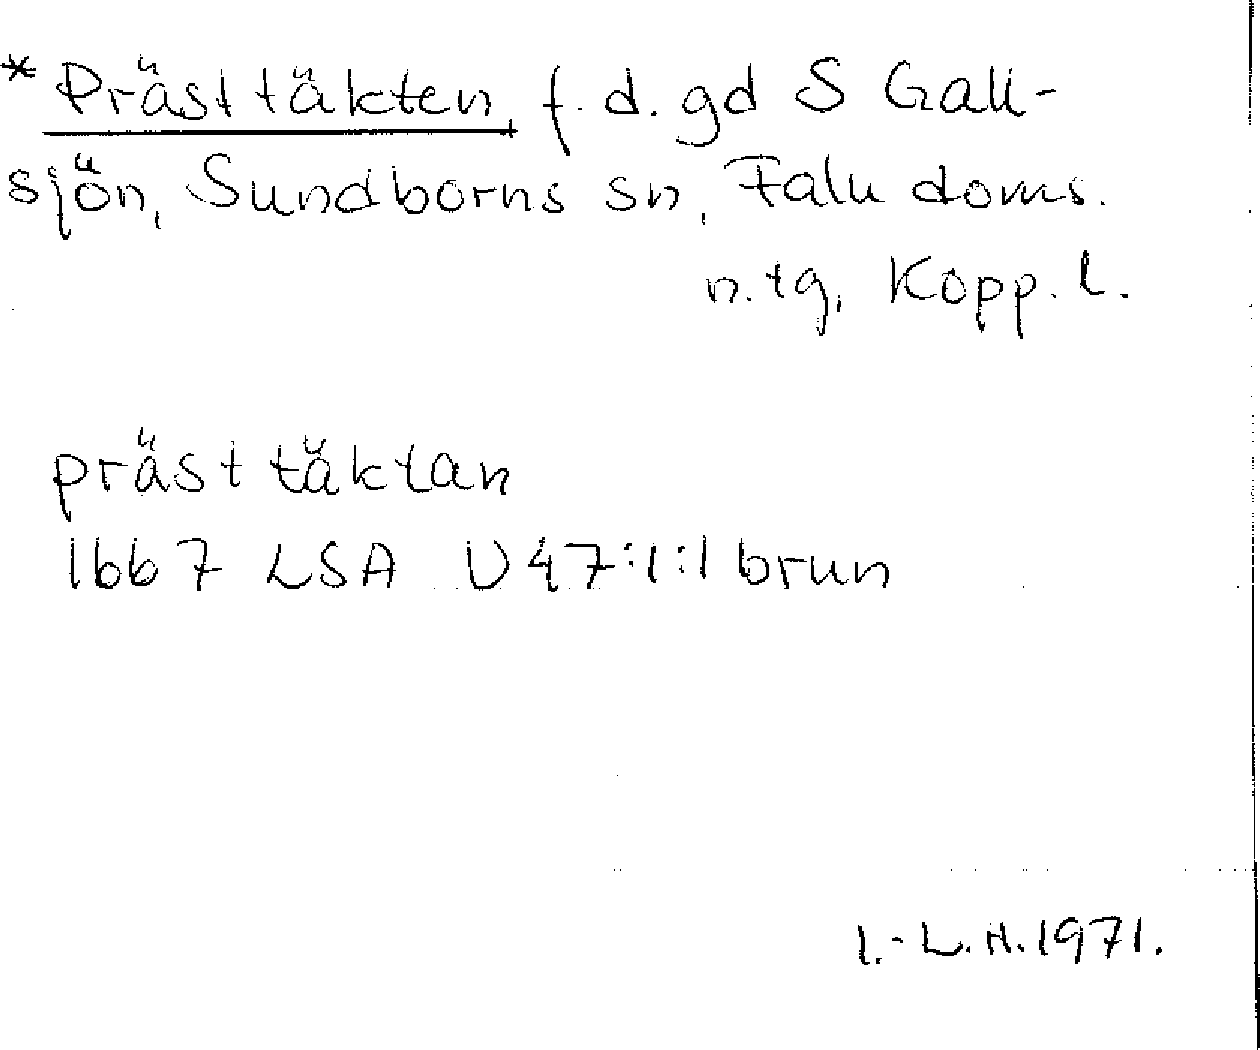 *Prästtäkten, f.d. gd S Gall-
sjön, Sundborns sn, Falu doms.
n.tg, Kopp. l.
prästtäktan
1667 LSA U47:1:1 brun
I.-L.H.1971.